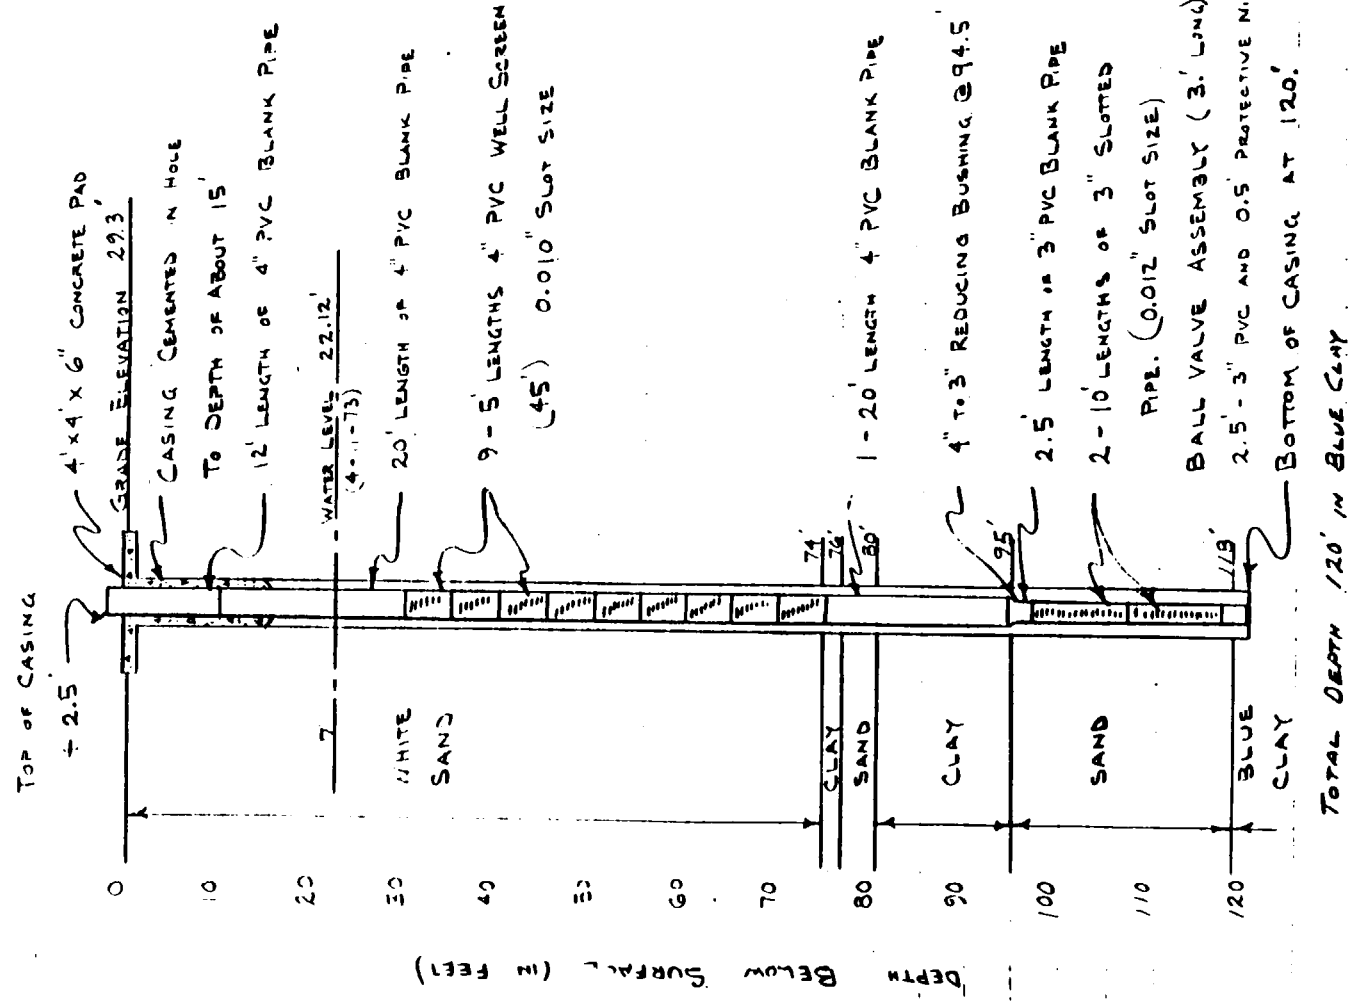 TOP OF CASING
+ 2.5'
4' x 4' x 6" CONCRETE PAD
GRADE ELEVATION 29.3'
CASING CEMENTED IN HOLE
TO DEPTH OF ABOUT 15'
12' LENGTH OF 4" PVC BLANK PIPE
WATER LEVEL 22.12'
73)
20' LENGTH OF 4" PVC BLANK PIPE
9 - 5' LENGTHS 4" PVC WELL SCREEN
(45') 0.010" SLOT SIZE
74'
76'
80'
1 - 20' LENGTH 4" PVC BLANK PIPE
4" TO 3" REDUCING BUSHING @ 94.5'
95'
2.5' LENGTH OF 3" PVC BLANK PIPE
2 - 10' LENGTHS OF 3" SLOTTED
PIPE. (0.012" SLOT SIZE)
BALL VALVE ASSEMBLY (3.' LONG)
2.5' - 3" PVC AND 0.5' PROTECTIVE
BOTTOM OF CASING AT 120.'
7
WHITE
SAND
CLAY
SAND
CLAY
SAND
BLUE
CLAY
0
10
20
30
40
50
60
70
80
90
100
110
120
DEPTH BELOW SURFACE (IN FEET)
TOTAL DEPTH 120' IN BLUE CLAY